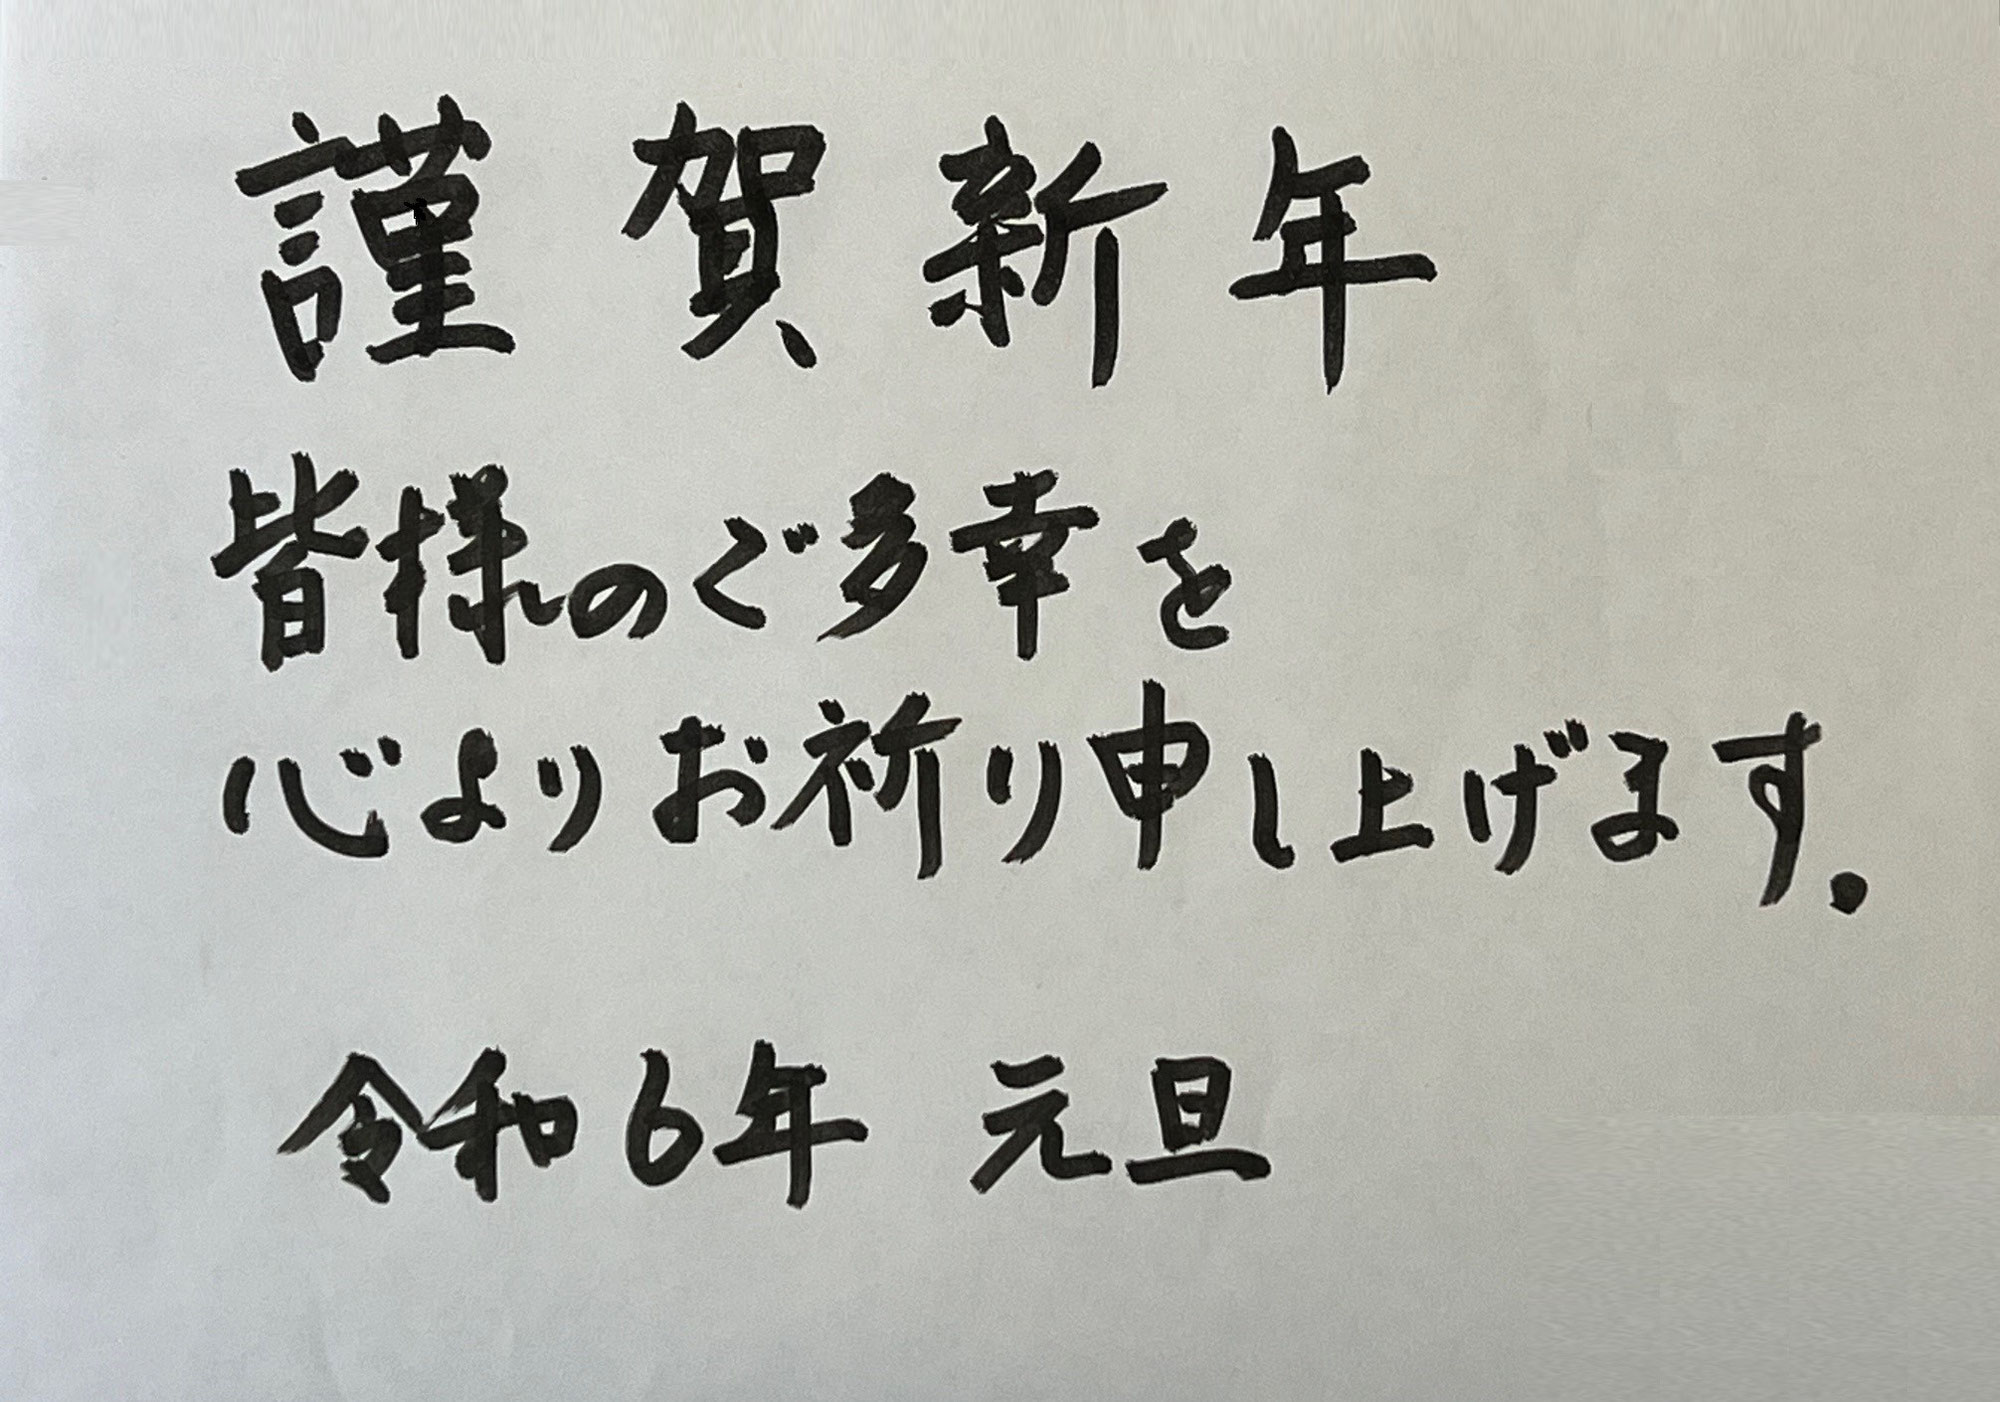 謹賀新年
皆様のご多幸を
心よりお祈り申し上げます.
令和6年 元旦